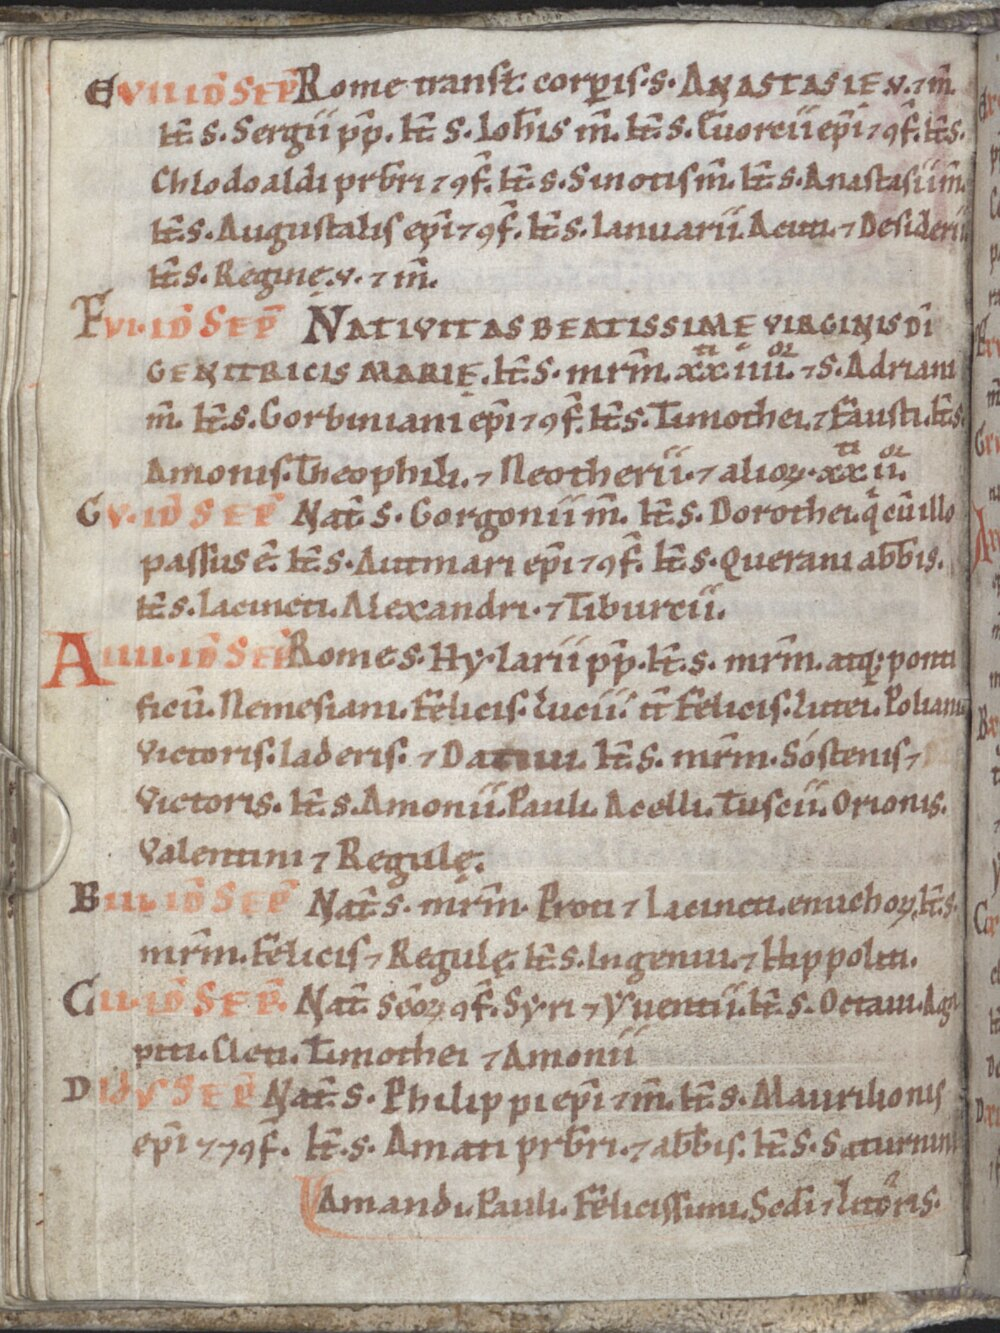 E VII ID̄ SEP̄ Rome transl̄. corp̄is. s. ANASTASIE. v. ⁊ m̄
It̄. s. Sergii pp̄. It̄. s. Ioh̄is m̄. It̄. s. Euorcii ep̄i ⁊ ꝯf̄. It̄. s.
Chlodoaldi pr̄bri ⁊ ꝯf̄. It̄. s. Sinotis m̄. It̄. s. Anastasii m̄.
It̄. s. Augustalis ep̄i ⁊ ꝯf̄. It̄. s. Ianuarii. Acuti. ⁊ Desiderii
It̄. s. Reginę. v. ⁊ m̄.
F VI. ID̄ SEP̄ NATIVITAS BEATISSIME VIRGINIS DĪ
GENITRICIS MARIĘ. It̄. s. mr̄m. xxti iiiior. ⁊ s. Adriani
m̄. It̄. s. Gorbiniani ep̄i ⁊ ꝯf̄. It̄. s. Timothei. ⁊ Fausti. It̄. s.
Amonis. Theophili. ⁊ Neotherii. ⁊ alioꝝ. xxti iior.
G V. ID̄ SEP̄ Nat̄. s. Gorgonii m̄. It̄. s. Dorothei. q̇ cū illo
passus ē. It̄. s. Autmari ep̄i ⁊ ꝯf̄. It̄. s. Querani abb̄is.
It̄. s. Iacincti. Alexandri. ⁊ Tiburcii.
A IIII. ID̄ SEP̄ Rome s. Hylarii pp̄. It̄. s. mr̄m. atq; ponti
ficū. Nemesiani. Felicis. Lucii. it̄ Felicis. Lutei. Poliani
Victoris. Iaderis. ⁊ Datiui. It̄. s. mr̄m. Sostenis ⁊
Victoris. It̄. s. Amonii. Pauli. Acelli. Tuscii. Orionis.
Valentini ⁊ Regulę.
B III. ID̄ SEP̄ Nat̄. s. mr̄m. Proti ⁊ Iacincti. enuchoꝝ. It̄. s.
mr̄m. Felicis ⁊ Regulę. It̄. s. Ingenui. ⁊ Hippoliti.
C II. ID̄ SEP̄. Nat̄. sc̄oꝝ ꝯf̄. Syri ⁊ Yuentii. It̄. s. Octaui. Aga
piti. Cleti. Timothei ⁊ Amonii
D IDVS SEP̄ Nat̄. s. Philippi ep̄i ⁊ m̄. It̄. s. Maurilionis
ep̄i ⁊ ⁊ ꝯf̄. It̄. s. Amati pr̄bri. ⁊ abb̄is. It̄. s. Saturnini
Amandi. Pauli. Felicissimi. Sedi ⁊ Litoris.